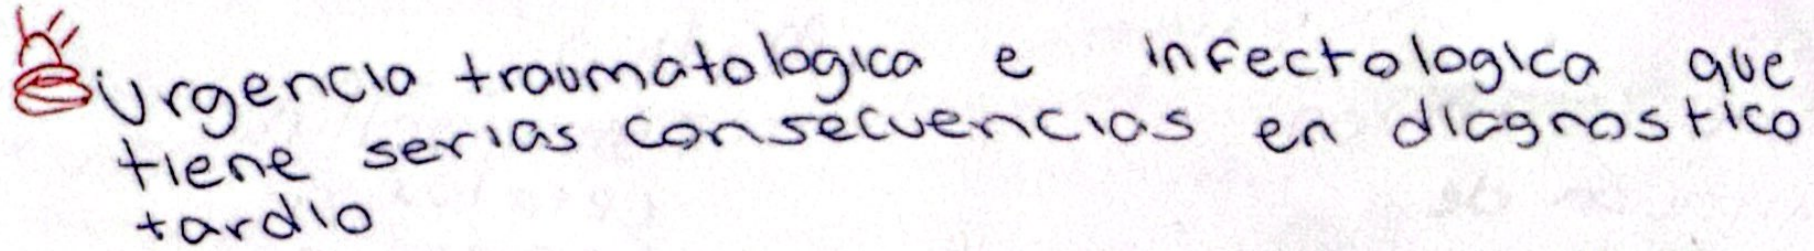 Urgencia traumatologica e infectologica que
tiene serias consecuencias en diagnostico
tardio